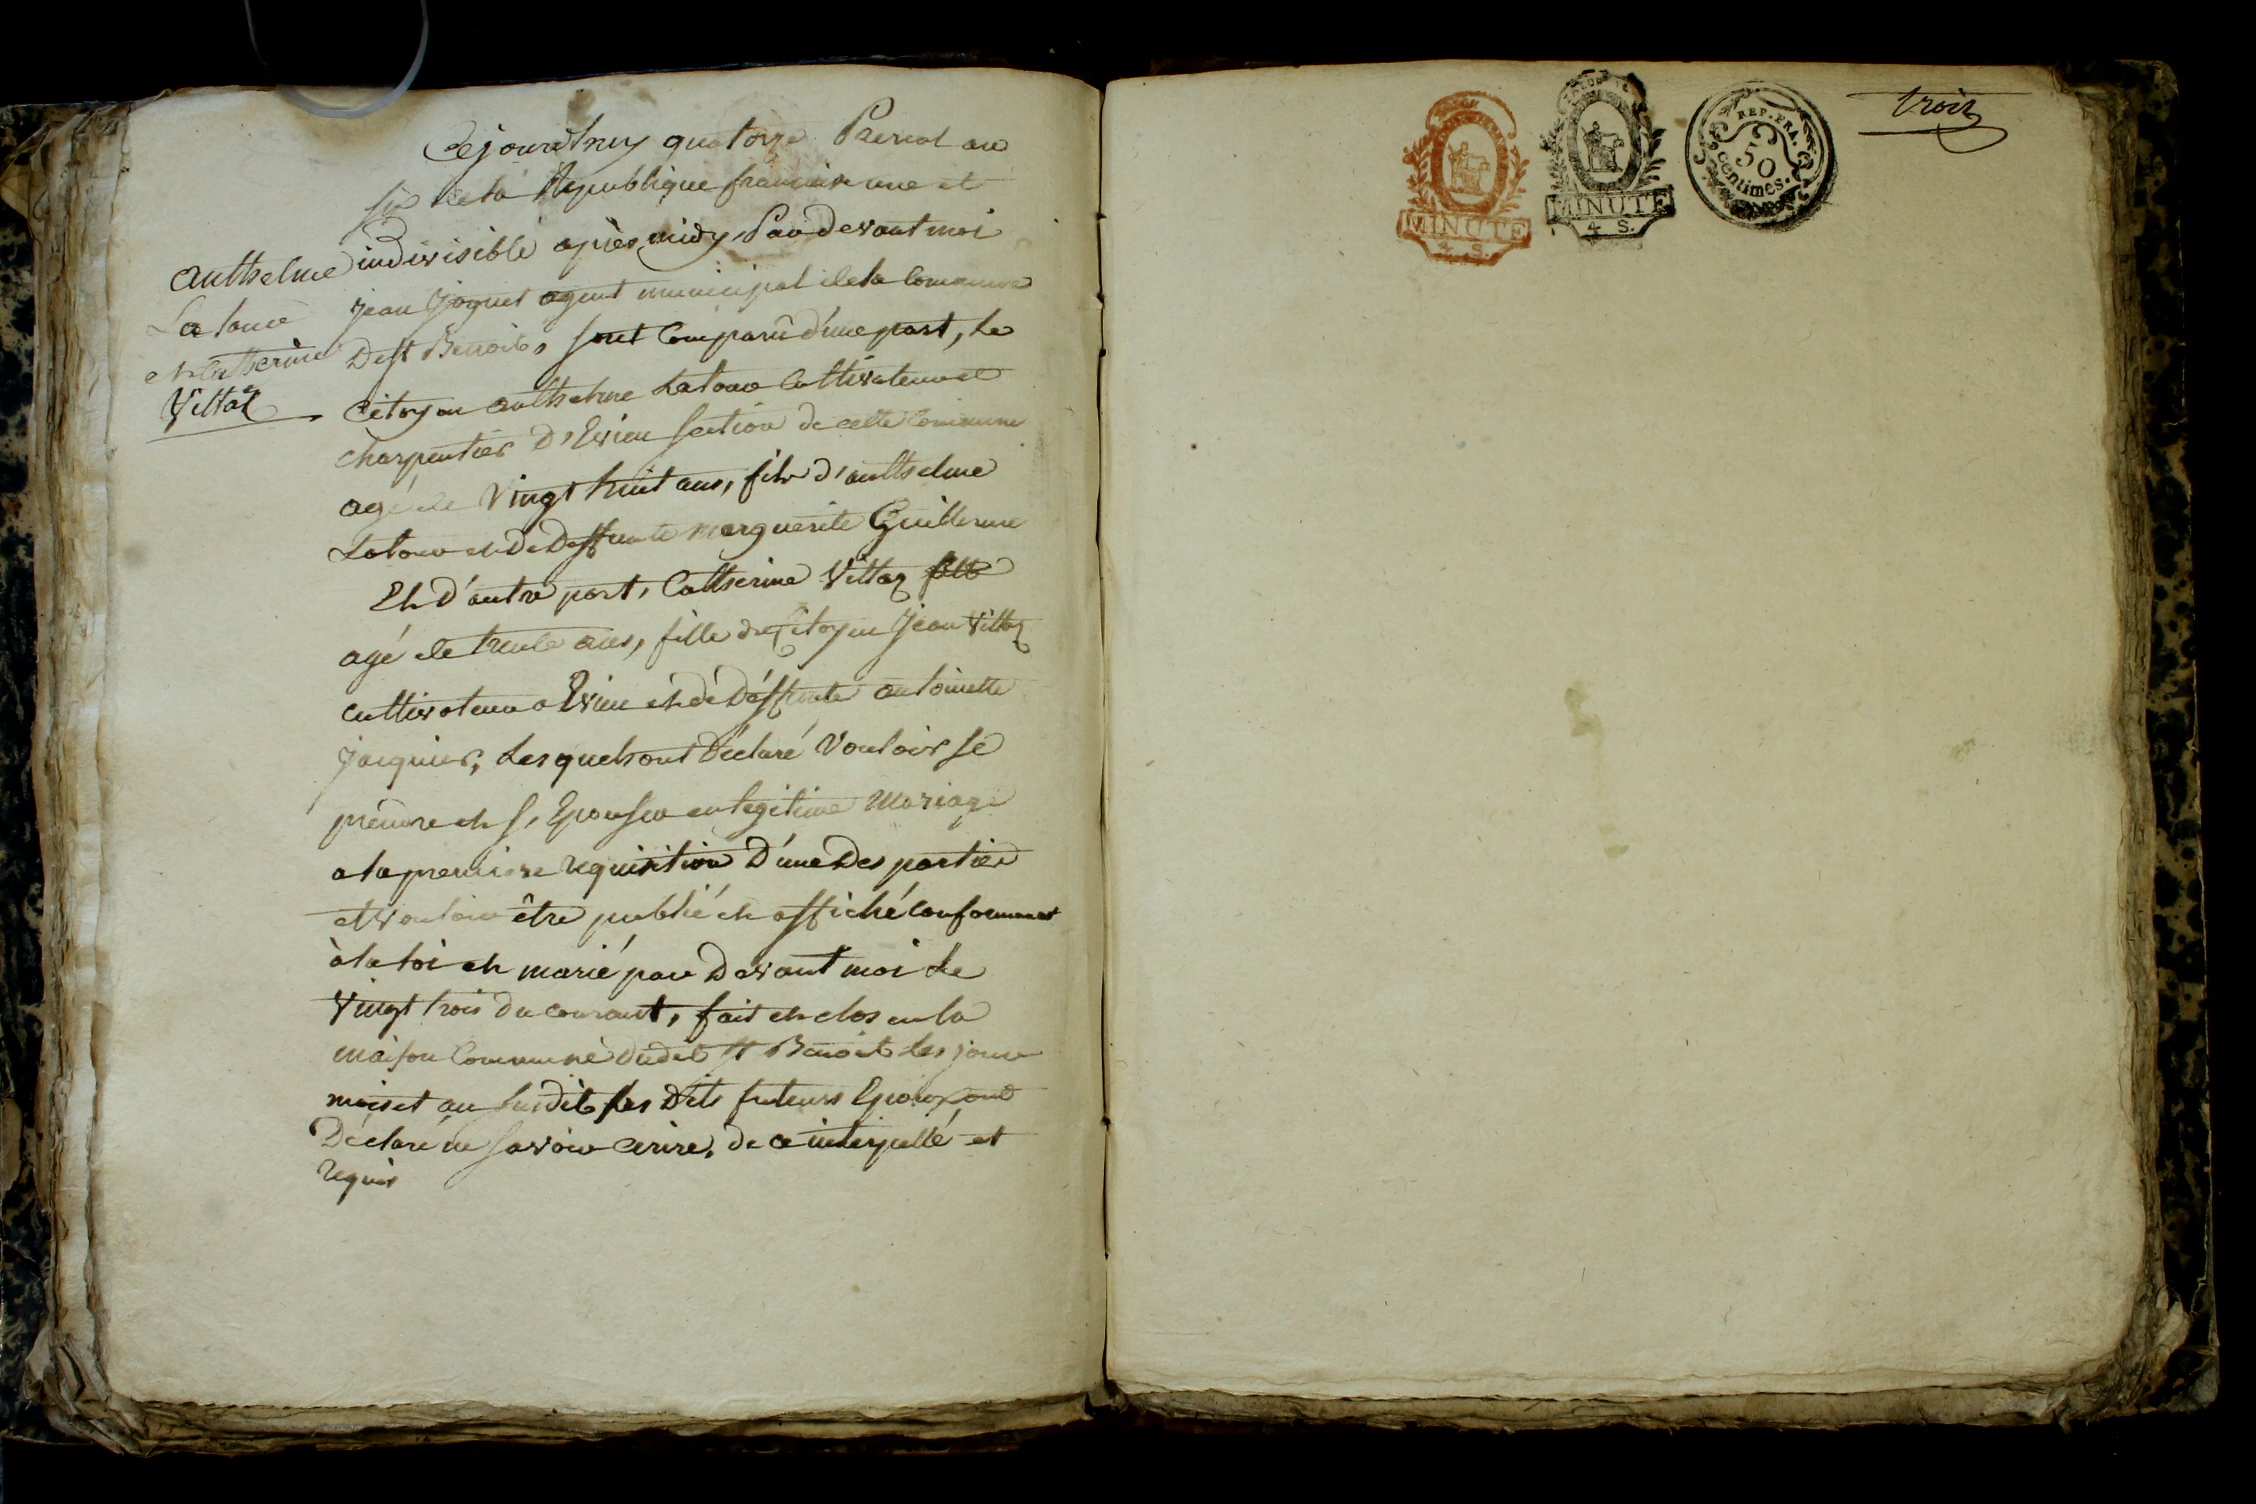 Cejourdhuy quatorze Prerial an
six de la Republique francaise une et
indivisible après midy, Par devant moi
Jean Joguet agent municipal de la Commune
De st Benoit, sont Comparu d'une part, Le
Citoyen anthelme Latour Cultivateur et
charpentier D'Evieu section de cette Commune
agé de Vingt huit ans, fils d'anthelme
Latour et De Deffunte marguerite Guillerme
Et D'autre part, Catherine Vittoz fille
agé de trente ans, fille du Citoyen Jean Vittoz
cultivateur a Evieu et de Déffunte antoinette
Jacquier, Lesquels ont Déclaré Vouloir se
prendre et s'Epouser en legitime Mariage
a la premiere requisition D'une Des parties
et vouloir être publié et affiché Conformement
à la loi et marié par Devant moi Le
Vingt trois du courant, fait et clos en la
maison Commune Dudit st Benoit Les jour
mois et an susdit Les Dits futurs Epoux ont
Déclaré ne savoir Ecrire, de ce interpellé et
requis
anthelme
Latour
et Catherine
Vittoz
MINUTE
4 S.
MINUTE
4 S.
REP. FRA.
50
centimes.
trois